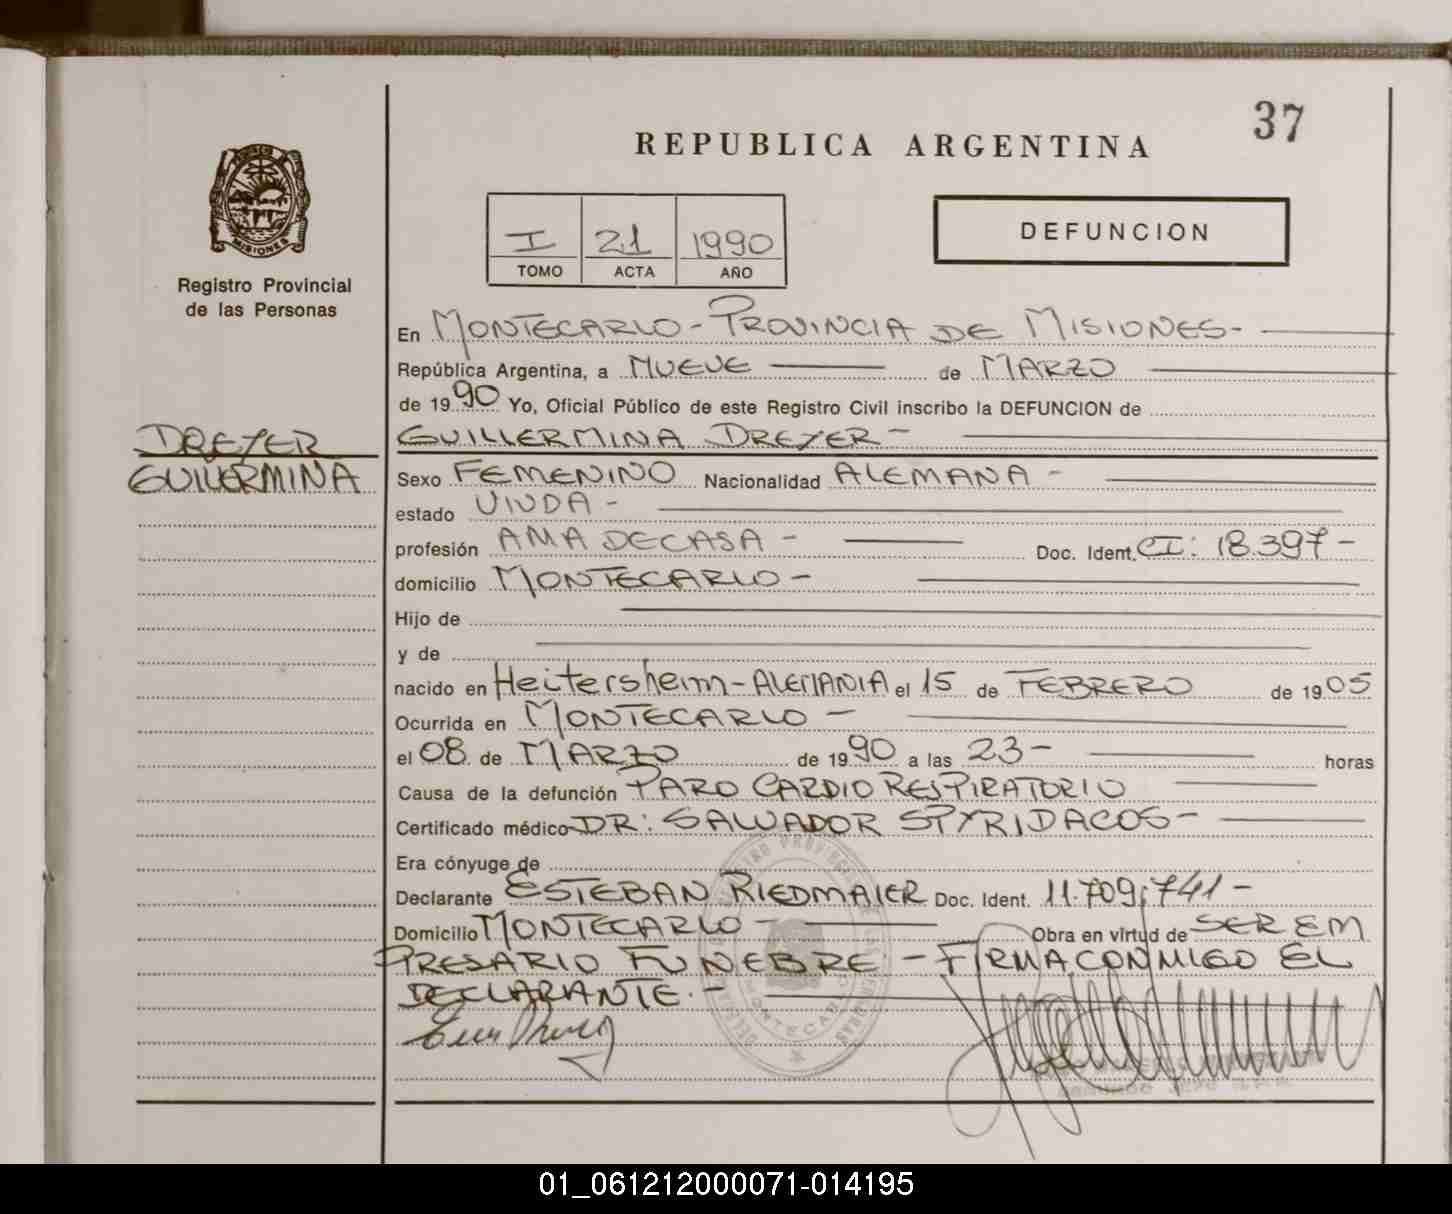 37
REPUBLICA ARGENTINA
MISIONES
Registro Provincial
de las Personas
I 21 1990
TOMO ACTA AÑO
DEFUNCION
DREYER
GUILLERMINA
En MONTECARLO - PROVINCIA DE MISIONES-
República Argentina, a NUEVE de MARZO
de 1990 Yo, Oficial Público de este Registro Civil inscribo la DEFUNCION de
GUILLERMINA DREYER -
Sexo FEMENINO Nacionalidad ALEMANA -
estado VIUDA -
profesión AMA DE CASA - Doc. Ident. CI: 18.397-
domicilio MONTECARLO -
Hijo de
y de
nacido en Heitersheim - ALEMANIA el 15 de FEBRERO de 1905
Ocurrida en MONTECARLO -
el 08 de MARZO de 1990 a las 23- horas
Causa de la defunción PARO CARDIO RESPIRATORIO
Certificado médico DR: SALVADOR SPYRIDACOS -
Era cónyuge de
Declarante ESTEBAN RIEDMAIER Doc. Ident. 11.709.741 -
Domicilio MONTECARLO - Obra en virtud de SER EM
PRESARIO FUNEBRE - FIRMA CONMIGO EL
DECLARANTE. -
MONTECARLO
01_061212000071-014195